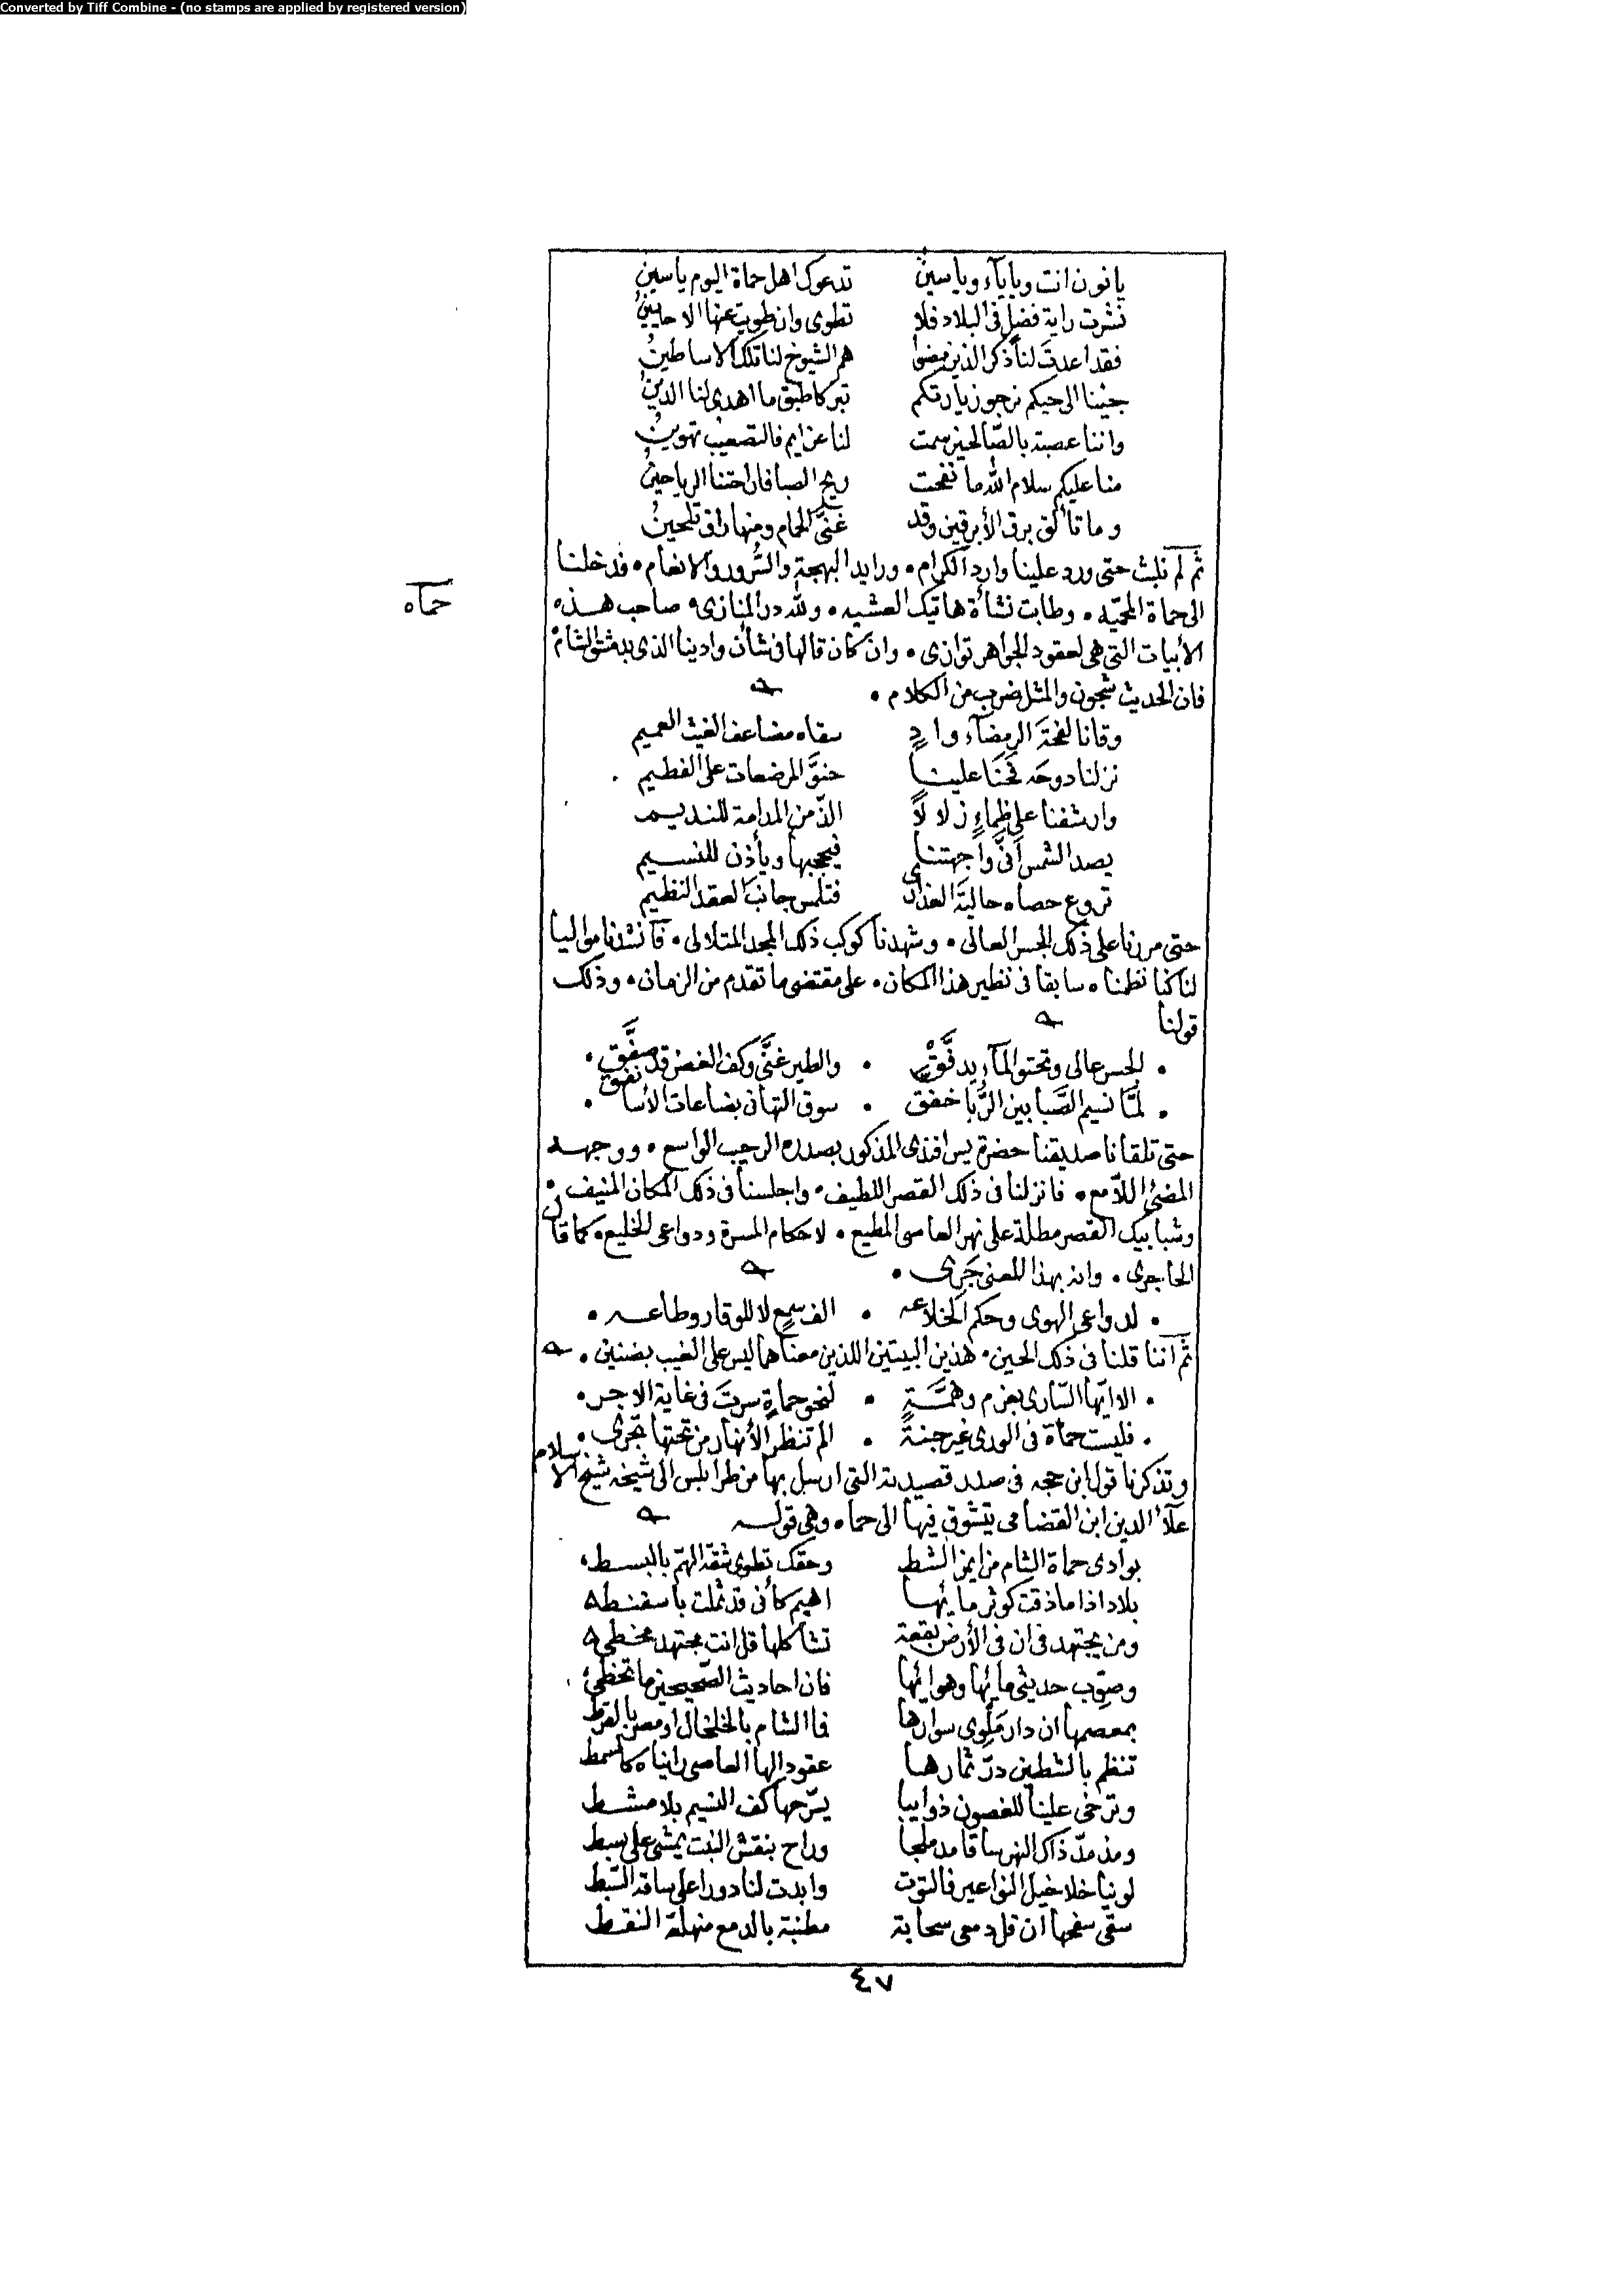 Converted by Tiff Combine - (no stamps are applied by registered version)
يا نون انت ويا ياء ويا سين تدعوك اهل حماة اليوم ياسين
نشرت راية فضل فى البلاد فلا تطوى وان طويت عنها الاحايين
فقد اعدت لنا ذكر الذين مضوا هم الشيوخ لنا تلك الاساطين
جئنا الى حيكم نرجو زيارتكم تبركا طبق ما اهدى لنا الدين
واننا عصبة بالصّالحين سمت لنا عزايم فالتصعيب تهوين
منا عليكم سلام الله ما نفحت ريح الصبا فاراحتنا الرياحين
وما تألق برق الأبرقين وقد غنّى الحمام ومنها راق تلحين
ثم لم نلبث حتى ورد علينا وارد الكرام، ورايد البهجة والسُّرور والانعام، فدخلنا
حماه
الى حماة المحميّه، وطابت نشأة هاتيك العشيه، ولله در المنازى، صاحب هذه
الأبيات التى هى لعقود الجواهر توازى، وان كان قالها فى شأن وادينا الذى بدمشق الشام
فان الحديث شجون والمثل ضرب من الكلام،
وقانا لفحة الرمضآء وادٍ سقاه مضاعف الغيث العميم
نزلنا دوحه فحنَا علينا حنوَّ المرضعات على الفطيم
وارشفنا على ظماءٍ زلالاً الذّ من المدامة للنديم
يصد الشمس أنَّى واجهتنا فيحجبها ويأذن للنسيم
تروع حصاه حاليةَ العذارى فتلمس جانبَ العقد النظيم
حتى مررنا على ذلك الجسر العالى، وشهدنا كوكب ذلك المجد المتلالى، فأنشدنا مواليا
لنا كنا نظمناه سابقا فى نظير هذا المكان، على مقتضى ما تقدم من الزمان، وذلك
قولنا
• الجسر عالى وتحتو المآء يدفَّق • والطير غنَّى وكف الغصن قد صفَّق •
• لمّا نسيم الصَّبا بين الرُّبا خفق • سوق التهانى بضاعات الأسا نفق •
حتى تلقانا صديقنا حضرة يس افندى المذكور بصدره الرحيب الواسع، ووجهه
المضئ اللاّمع، فانزلنا فى ذلك القصر اللطيف، واجلسنا فى ذلك المكان المنيف،
وشبابيك القصر مطلة على نهر العاصى المطيع، لاحكام المسرة ودواعى الخليع، كما قال
الحاجرى، وانه بهذا المعنى جَرِى،
• لدواعى الهوى وحكم الخلاعه • الف سمعٍ لا للوقار وطاعه •
ثمّ اننا قلنا فى ذلك الحين، هذين البيتين اللذين معناهما ليس على الغيب بضنين،
• الا ايّها السّارى بعزم وهمَّةٍ • لنحو حماةٍ سرتَ فى غاية الاجر •
• فليست حماة فى الورى غير جنةٍ • الم تنظر الأنهار من تحتها تجرى •
وتذكرنا قول ابن حجه فى صدد قصيدته التى ارسل بها من طرابلس الى شيخه شيخ الاسلام
علآء الدين ابن القضامى يتشوق فيها الى حماه وهى قوله
بوادى حماة الشام من ايمن الشط وحقك تطوى شقة الهمّ بالبسط
بلاد اذا ما ذقت كوثر مايها اهيم كأنى قد ثملت باسفنط
ومن يجتهد فى ان فى الأرض بقعة تشاكلها قل انت مجتهد مخطى
وصوّب حديثى مائها وهوائها فان احاديث الصّحيحين ما تخطئ
بمعصمها ان دار ملوى سوارها فما الشام بالخلخال او مصر بالقرط
تنظم بالشطين درّ ثمارها عقود الها العاصى رايناه كالسمط
وترخى علينا للغصون ذوايبا يسّرحها كف النسيم بلا مشط
ومذ مدّ ذاك النهر ساقا مدملجا وراح بنقش النبت يمشى على بسط
لوينا خلاخيل النواعير فالتوت وابدت لنا دورا على ساقه السّبط
سقى سفحها ان قل دمعى سحابة مطنبة بالدمع منهلة النقط
٤٧